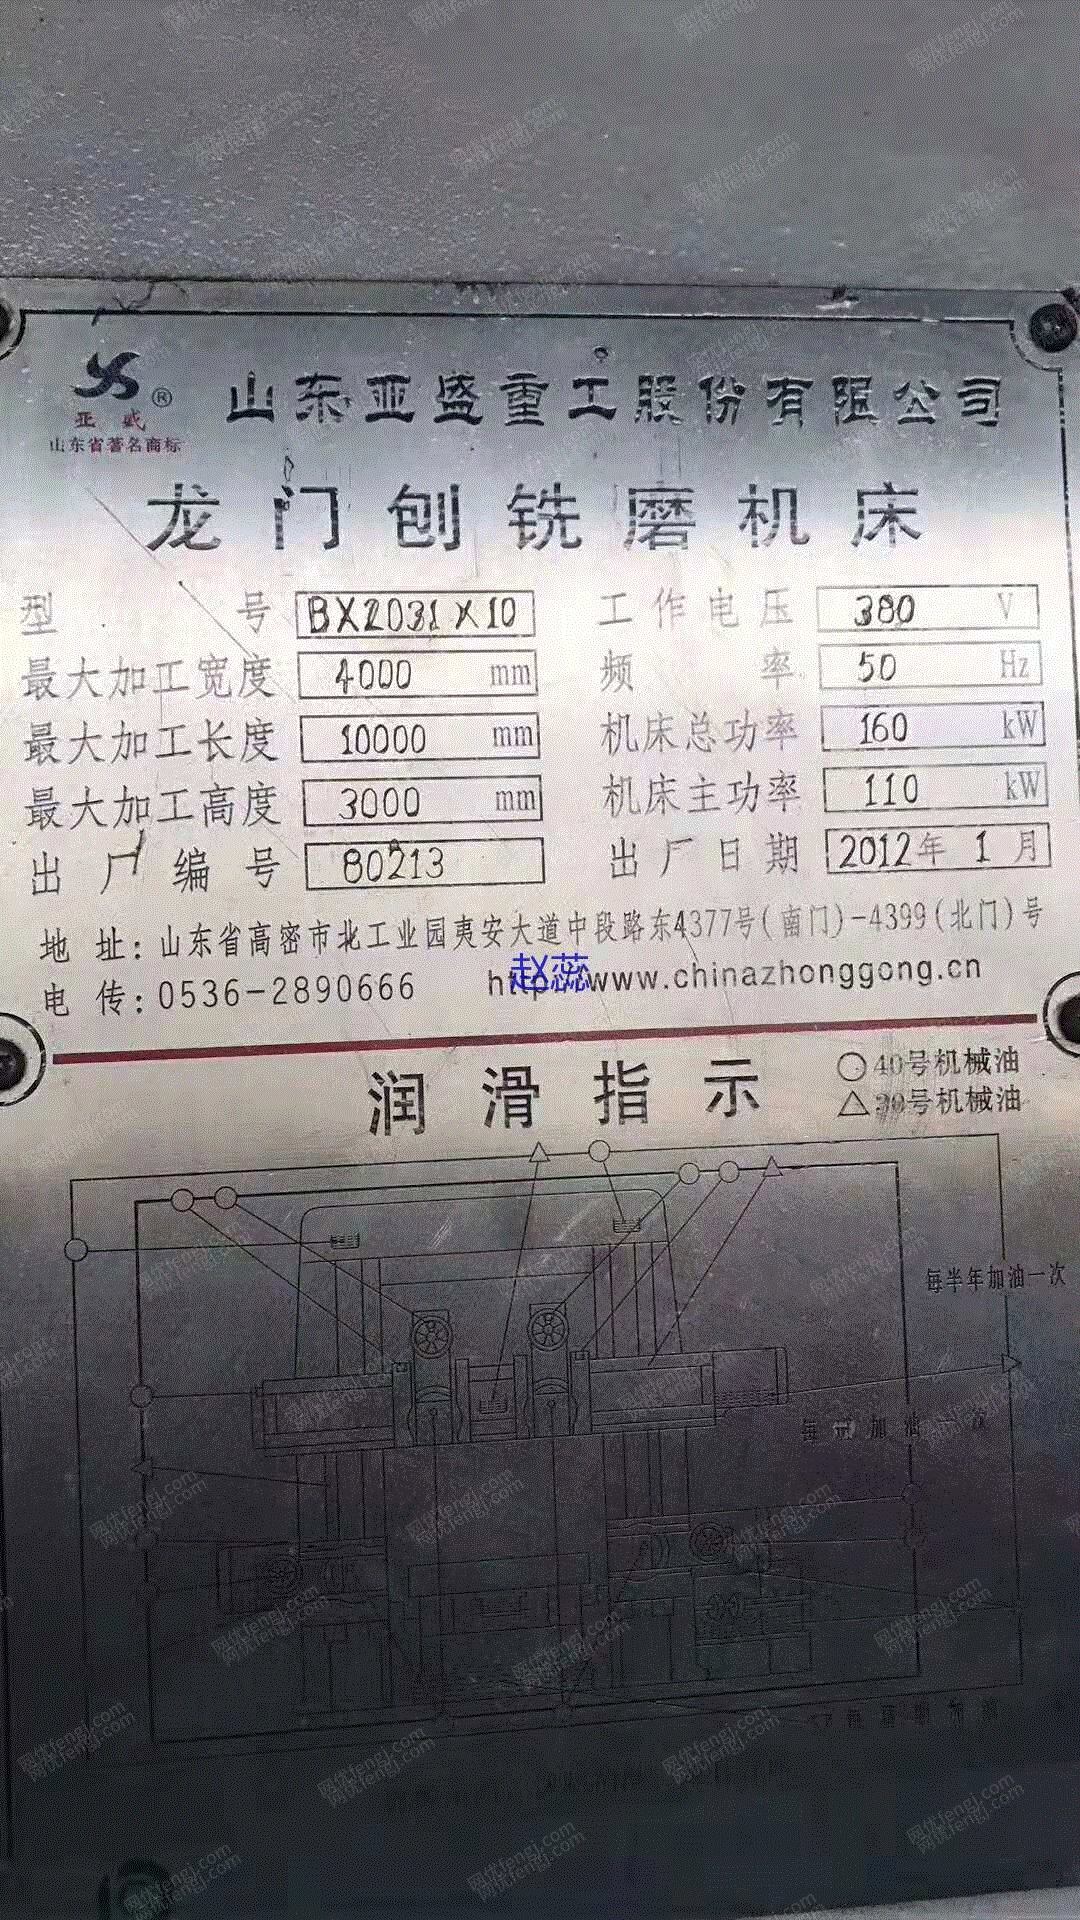 亚盛®
山东省著名商标
山东亚盛重工股份有限公司
龙门刨铣磨机床
型号 BX2031×10 工作电压 380 V
最大加工宽度 4000 mm 频率 50 Hz
最大加工长度 10000 mm 机床总功率 160 kW
最大加工高度 3000 mm 机床主功率 110 kW
出厂编号 80213 出厂日期 2012年 1月
地址:山东省高密市北工业园夷安大道中段路东4377号(南门)-4399(北门)号
电传:0536-2890666 http www.chinazhonggong.cn
赵蕊
润滑指示
○40号机械油
△30号机械油
每半年加油一次
每 加油一次
网优fengj.com